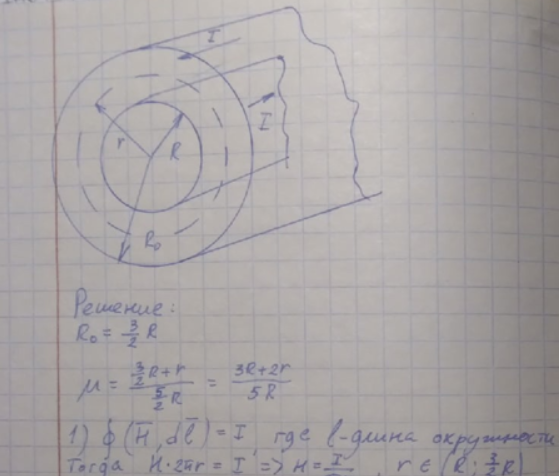 I
I
r
R
R₀
Решение:
R₀ = 3/2 R
μ = (3/2 R + r)/(5/2 R) = (3R+2r)/5R
1) ∮(H̄, dl̄) = I, где l-длина окружности
Тогда H·2πr = I => H = I , r ∈ (R; 3/2 R)